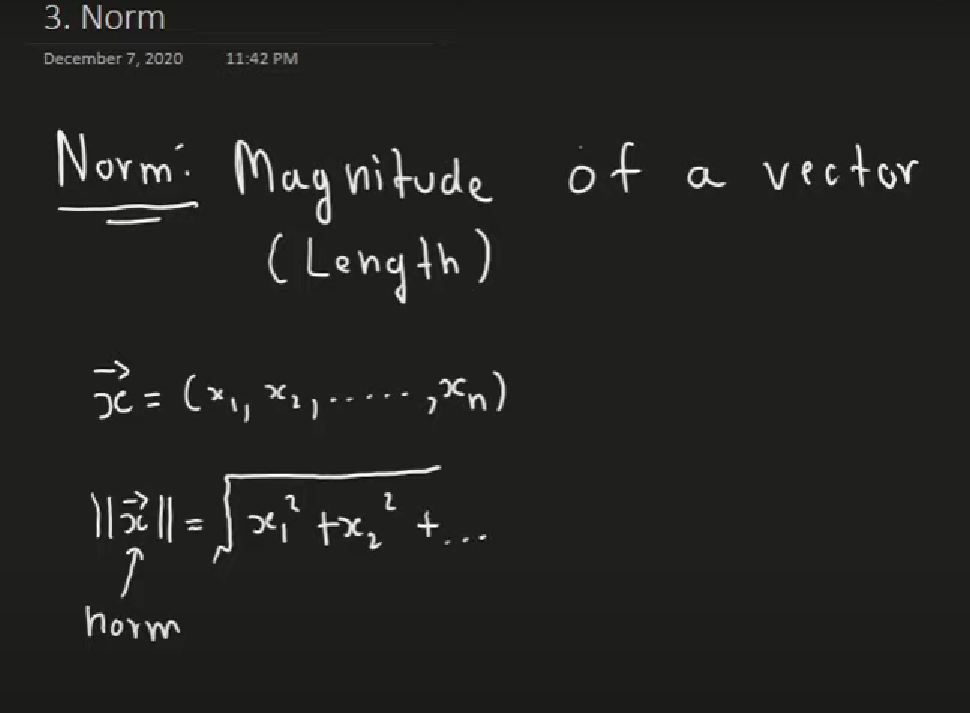 3. Norm
December 7, 2020 11:42 PM
Norm: Magnitude of a vector
(Length)
x⃗ = (x₁, x₂, ......, xₙ)
||x⃗|| = √x₁² + x₂² + ...
↑
norm